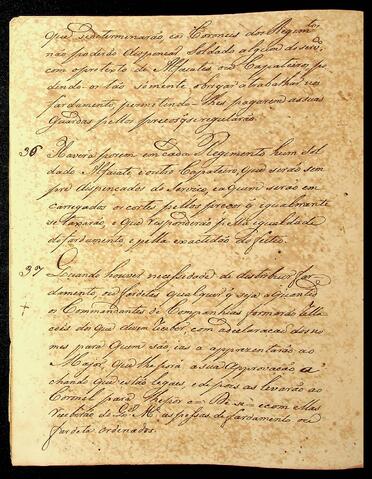 que se determinarão, os Coroneis dos Regim.tos
não poderão dispençar Soldado algum do servi
com o pretexto de Alfaiate, ou Çapateiro, po
dendo-os tão sómente obrigar a trabalhar nos
fardamento, permitendo-lhes pagarem as suas
Guardas pellos preços q se regularão.
36 Haverá porem em cada Regimento hum Sol
dado Alfaiate e outro Çapateiro, que serão sem
pre dispençados do Serviço, e a quem serão en
carregados os cortes pellos preços q igualmente
se taxarão, e que responderão pella igualdade
do fardamento, e pella exactidão do feitio.
37 Quando houver necessidade de distribuir far
damento, ou fardetas qualquer q seja a quantid.e
+ os Commandantes de Companhias formarão rella
ções dos que devem receber com a declaração dos no
mes para quem são, e as apprezentarão ao
Major, que lhe porá a sua Approvação a
chando que estão legaes, e depois as levarão ao
Coronel para lhe pôr o = De-se = e com ellas
receberão do Q.el M.e as pessas de fardamento ou
fardeta ordenados.